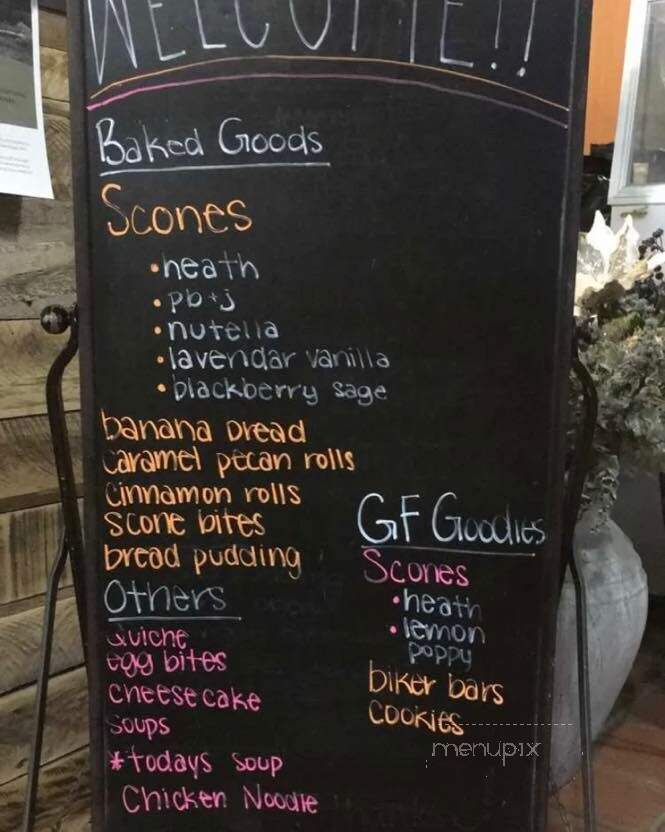 WELCOME!!
Baked Goods
Scones
• heath
• pb+j
• nutella
• lavendar vanilla
• blackberry sage
banana bread
caramel pecan rolls
cinnamon rolls
scone bites
bread pudding
Others
Quiche
egg bites
cheese cake
soups
*todays soup
Chicken Noodle
GF Goodies
Scones
• heath
• lemon
poppy
biker bars
cookies
menupix